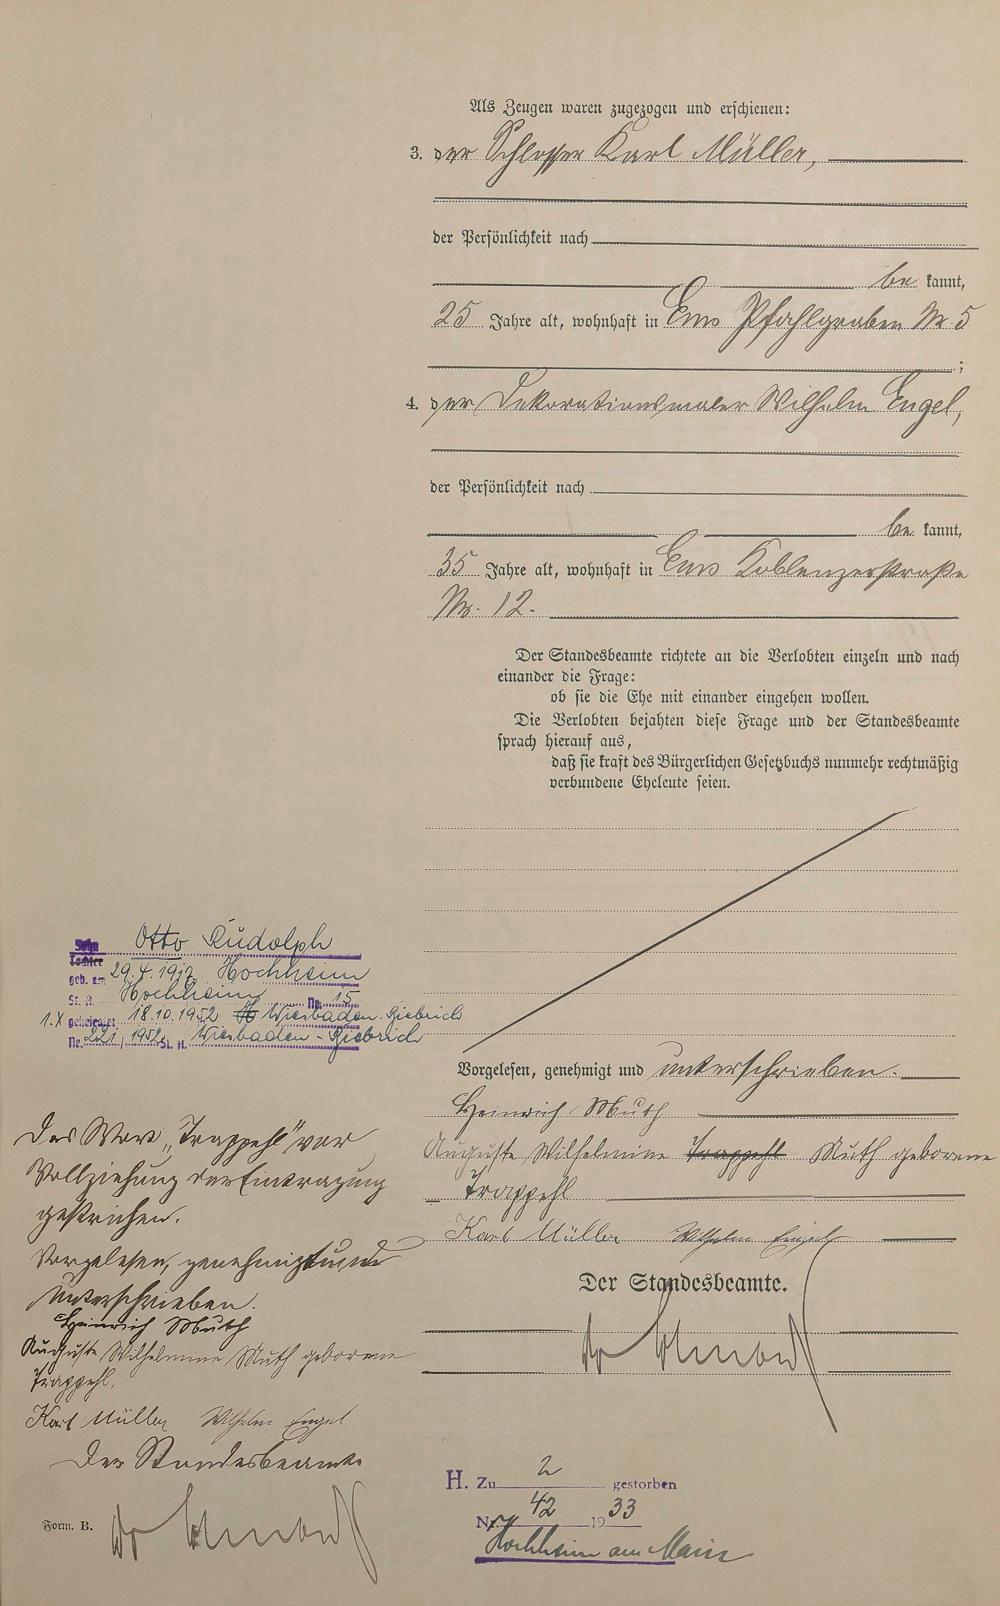 Als Zeugen waren zugezogen und erschienen:
3. der Schlosser Karl Müller,
der Persönlichkeit nach
be kannt,
25 Jahre alt, wohnhaft in Ems Pfahlgraben Nr 5
;
4. der Dekorationsmaler Wilhelm Engel,
der Persönlichkeit nach
be kannt,
35 Jahre alt, wohnhaft in Ems Koblenzerstraße
Nr. 12.
Der Standesbeamte richtete an die Verlobten einzeln und nach
einander die Frage:
ob sie die Ehe mit einander eingehen wollen.
Die Verlobten bejahten diese Frage und der Standesbeamte
sprach hierauf aus,
daß sie kraft des Bürgerlichen Gesetzbuchs nunmehr rechtmäßig
verbundene Eheleute seien.
Vorgelesen, genehmigt und unterschrieben.
Heinrich Muth
Auguste Wilhelmine Trappehl Muth geborene
Trappehl
Karl Müller Wilhelm Engel
Der Standesbeamte.
Sohn Otto Rudolph
Tochter
geb. am 29.7.1912 Hochheim
St. A. Hochheim Nr. 15
1.X geheiratet 18.10.1952 Wiesbaden-Biebrich
Nr. 221 / 1952 St. A. Wiesbaden-Biebrich
Das Wort „Trappehl" vor
Vollziehung der Eintragung
gestrichen.
Vorgelesen, genehmigt und
unterschrieben.
Heinrich Muth
Auguste Wilhelmine Muth geborene
Trappehl.
Karl Müller Wilhelm Engel
Der Standesbeamte
Form. B.
H. Zu 2 gestorben
Nr. 42 1933
Hochheim am Main